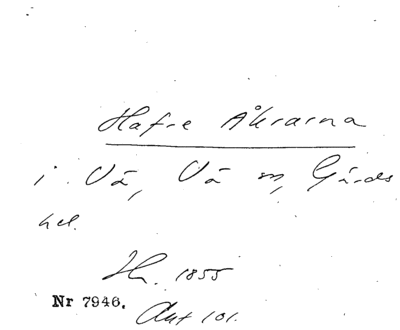 Hafre Åkrarna
i Vä, Vä sn, Gärds
hd.
1855
Nr 7946.
Akt 101.